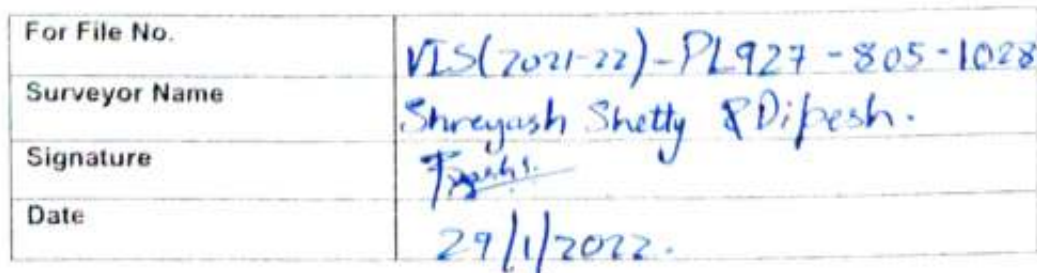 For File No. VIS(2021-22)-PL927-805-1028
Surveyor Name Shreyash Shetty & Dipesh.
Signature
Date 29/1/2022.